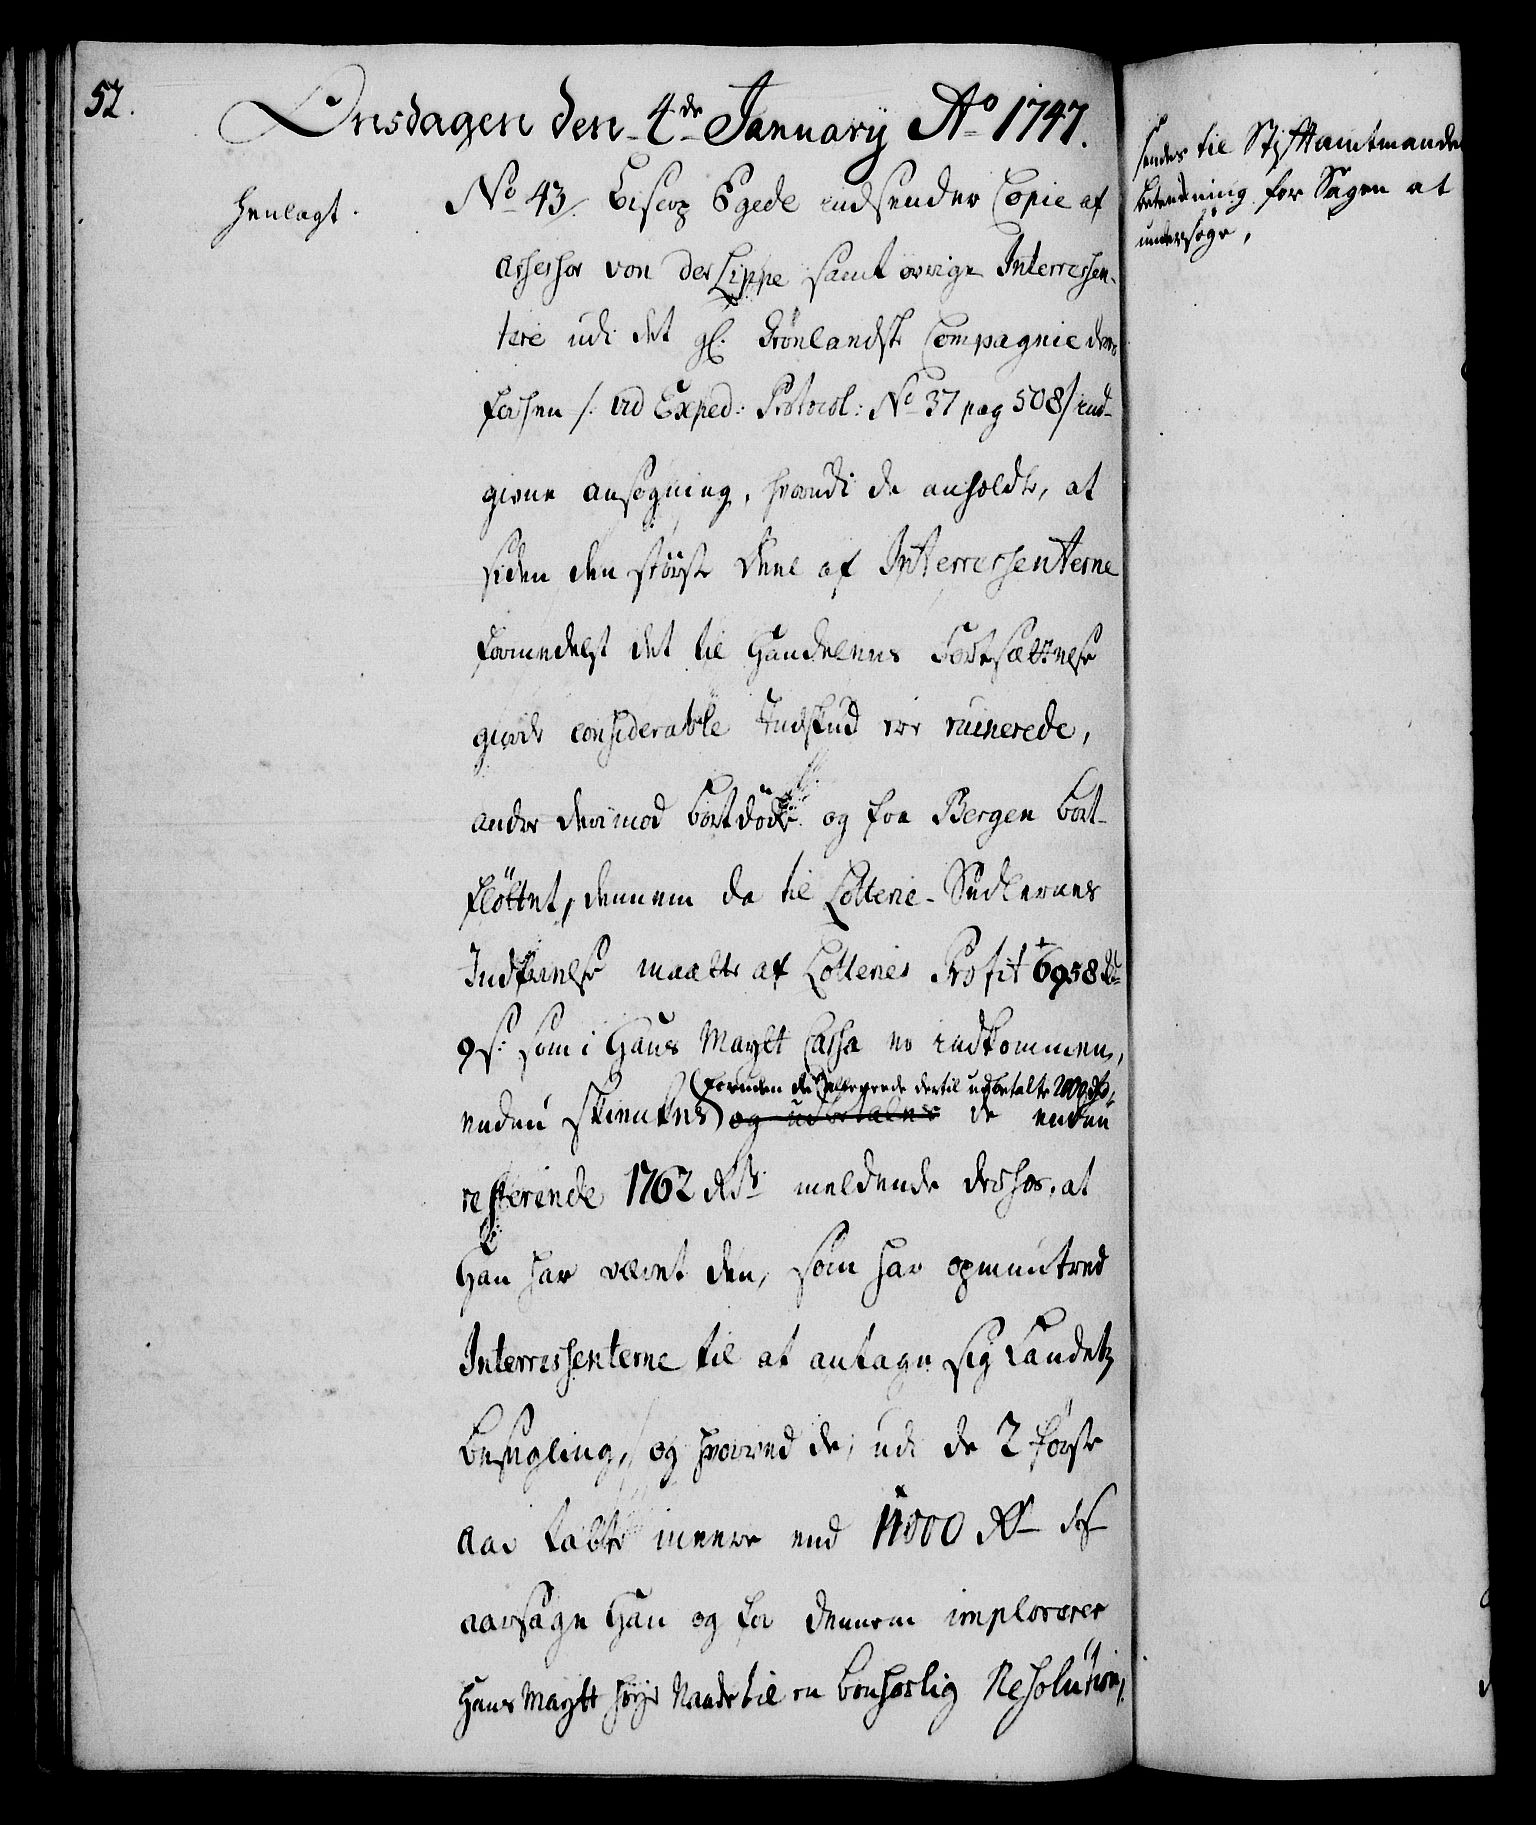 52.
Onsdagen den 4de January Ao 1747.
henlagt.
No 43/. Biscop Egede indsender Copie af
Assessor von der Lippe samt øvrige Interressen-
tere udi det gl. Grönlandske Compagnie deres
forhen /: vid Exped: Protocol: No 37 pag 508/ ind-
givne ansøgning, hvorudi de anholdt, at
siden den störste deel af Interressenterne
formedelst det til Handelens Fortsættelse
giorde considerable Indskud er ruinerede,
andre derimod bortdöde og fra Bergen bort-
flöttet, dennem da til Lotterie-Sedlernes
Indfrielse maatte af Lotteries Profit 6958 Rd
9 s: som i Hans Maytt Cassa er indkommen,
endnu skienkes (foruden de allerede dertil udbetalte 2000 Rd,
og udbetales de endnu
resterende 1762 Rdr meldende derhos, at
Han har været den, som har opmuntred
Interressenterne til at antage sig Landets
Besegling, og hvorved de, udi de 2 förste
aar tabte meere end 11000 Rd des
aarsage Han og for dennem implorerer
Hans Maytt höye Naade til en bönhörlig Resolution,
sendes til Stiftamtmandens
betenkning for Sagen at
undersøge,